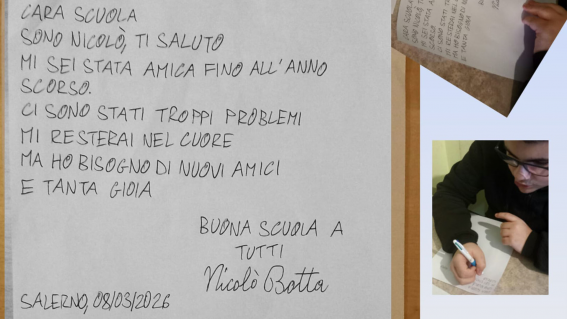 CARA SCUOLA
SONO NICOLÒ, TI SALUTO
MI SEI STATA AMICA FINO ALL'ANNO
SCORSO.
CI SONO STATI TROPPI PROBLEMI
MI RESTERAI NEL CUORE
MA HO BISOGNO DI NUOVI AMICI
E TANTA GIOIA
BUONA SCUOLA A
TUTTI
Nicolò Botta
SALERNO, 08/03/2026